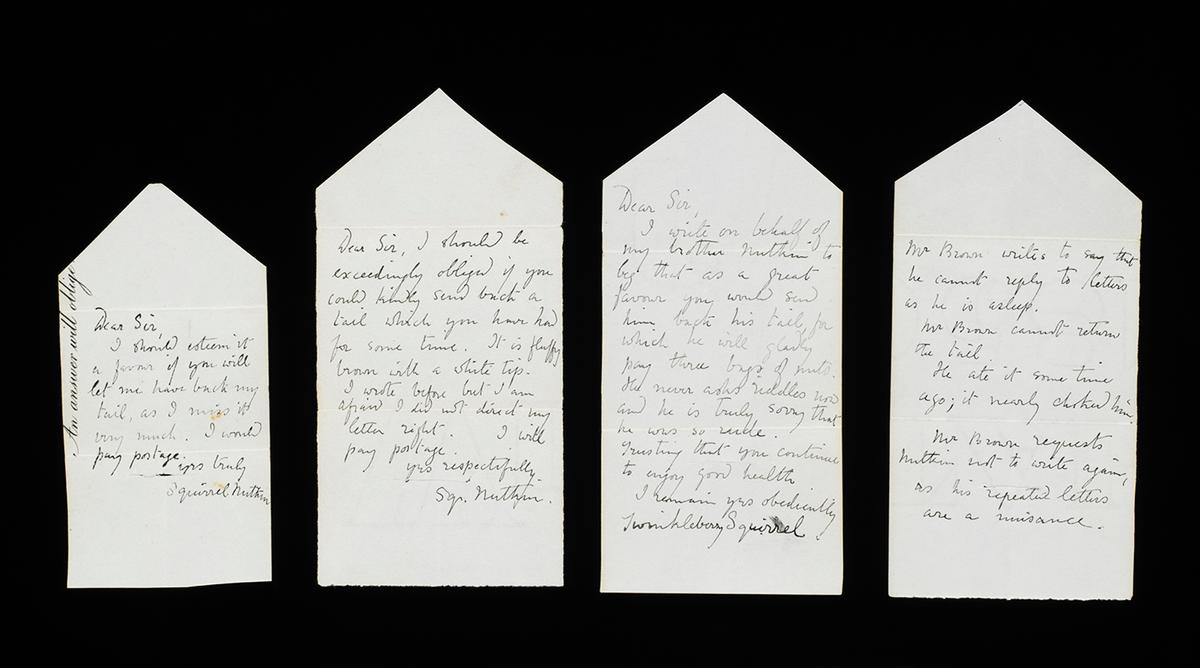 An answer will oblige
Dear Sir,
I should esteem it
a favour if you will
let me have back my
tail, as I miss it
very much. I would
pay postage.
yrs truly
Squirrel Nutkin
Dear Sir, I should be
exceedingly obliged if you
could kindly send back a
tail which you have had
for some time. It is fluffy
brown with a white tip.
I wrote before but I am
afraid I did not direct my
letter right. I will
pay postage.
yrs respectfully
Sq. Nutkin.
Dear Sir,
I write on behalf of
my brother Nutkin to
beg that as a great
favour you would send
him back his tail, for
which he will gladly
pay three bags of nuts.
He never asks riddles now
and he is truly sorry that
he was so rude.
Trusting that you continue
to enjoy good health
I remain yrs obediently
Twinkleberry Squirrel.
Mr Brown writes to say that
he cannot reply to letters
as he is asleep.
Mr Brown cannot return
the tail.
He ate it some time
ago; it nearly choked him.
Mr Brown requests
Nutkin not to write again,
as his repeated letters
are a nuisance.